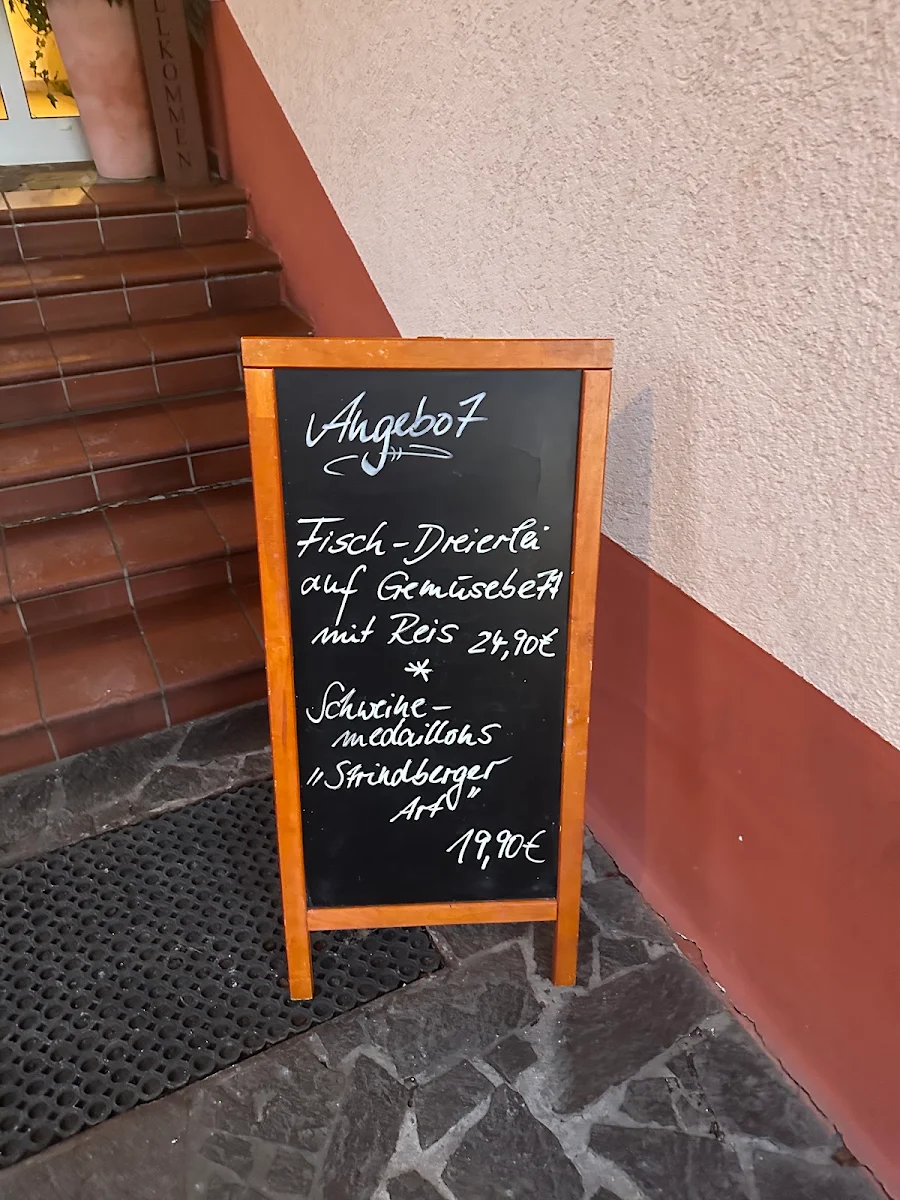 LLKOMMEN
Angebot
Fisch-Dreierlei
auf Gemüsebett
mit Reis 24,90€
*
Schweine-
medaillons
"Strindberger
Art"
19,90€